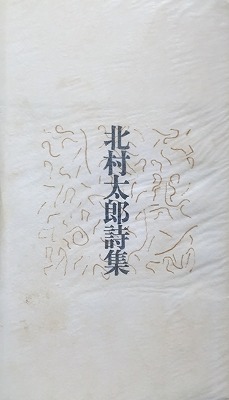 北村太郎詩集